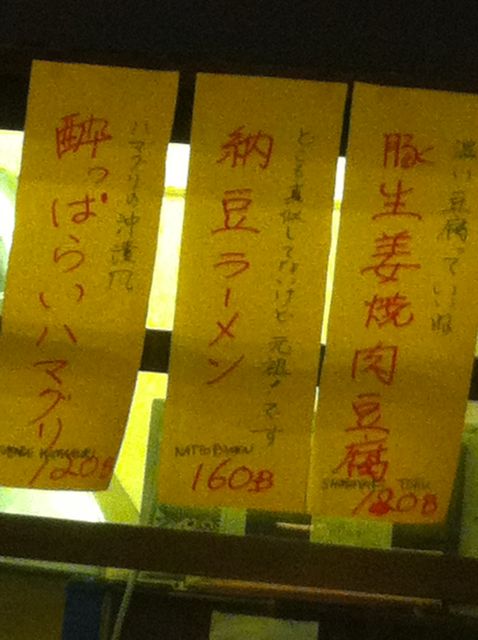 豚生姜焼肉豆腐
温い豆腐っていいね
120B
納豆ラーメン
どこも真似してないけど元祖!です
160B
酔っぱらいハマグリ
ハマグリの沖漬风
120B